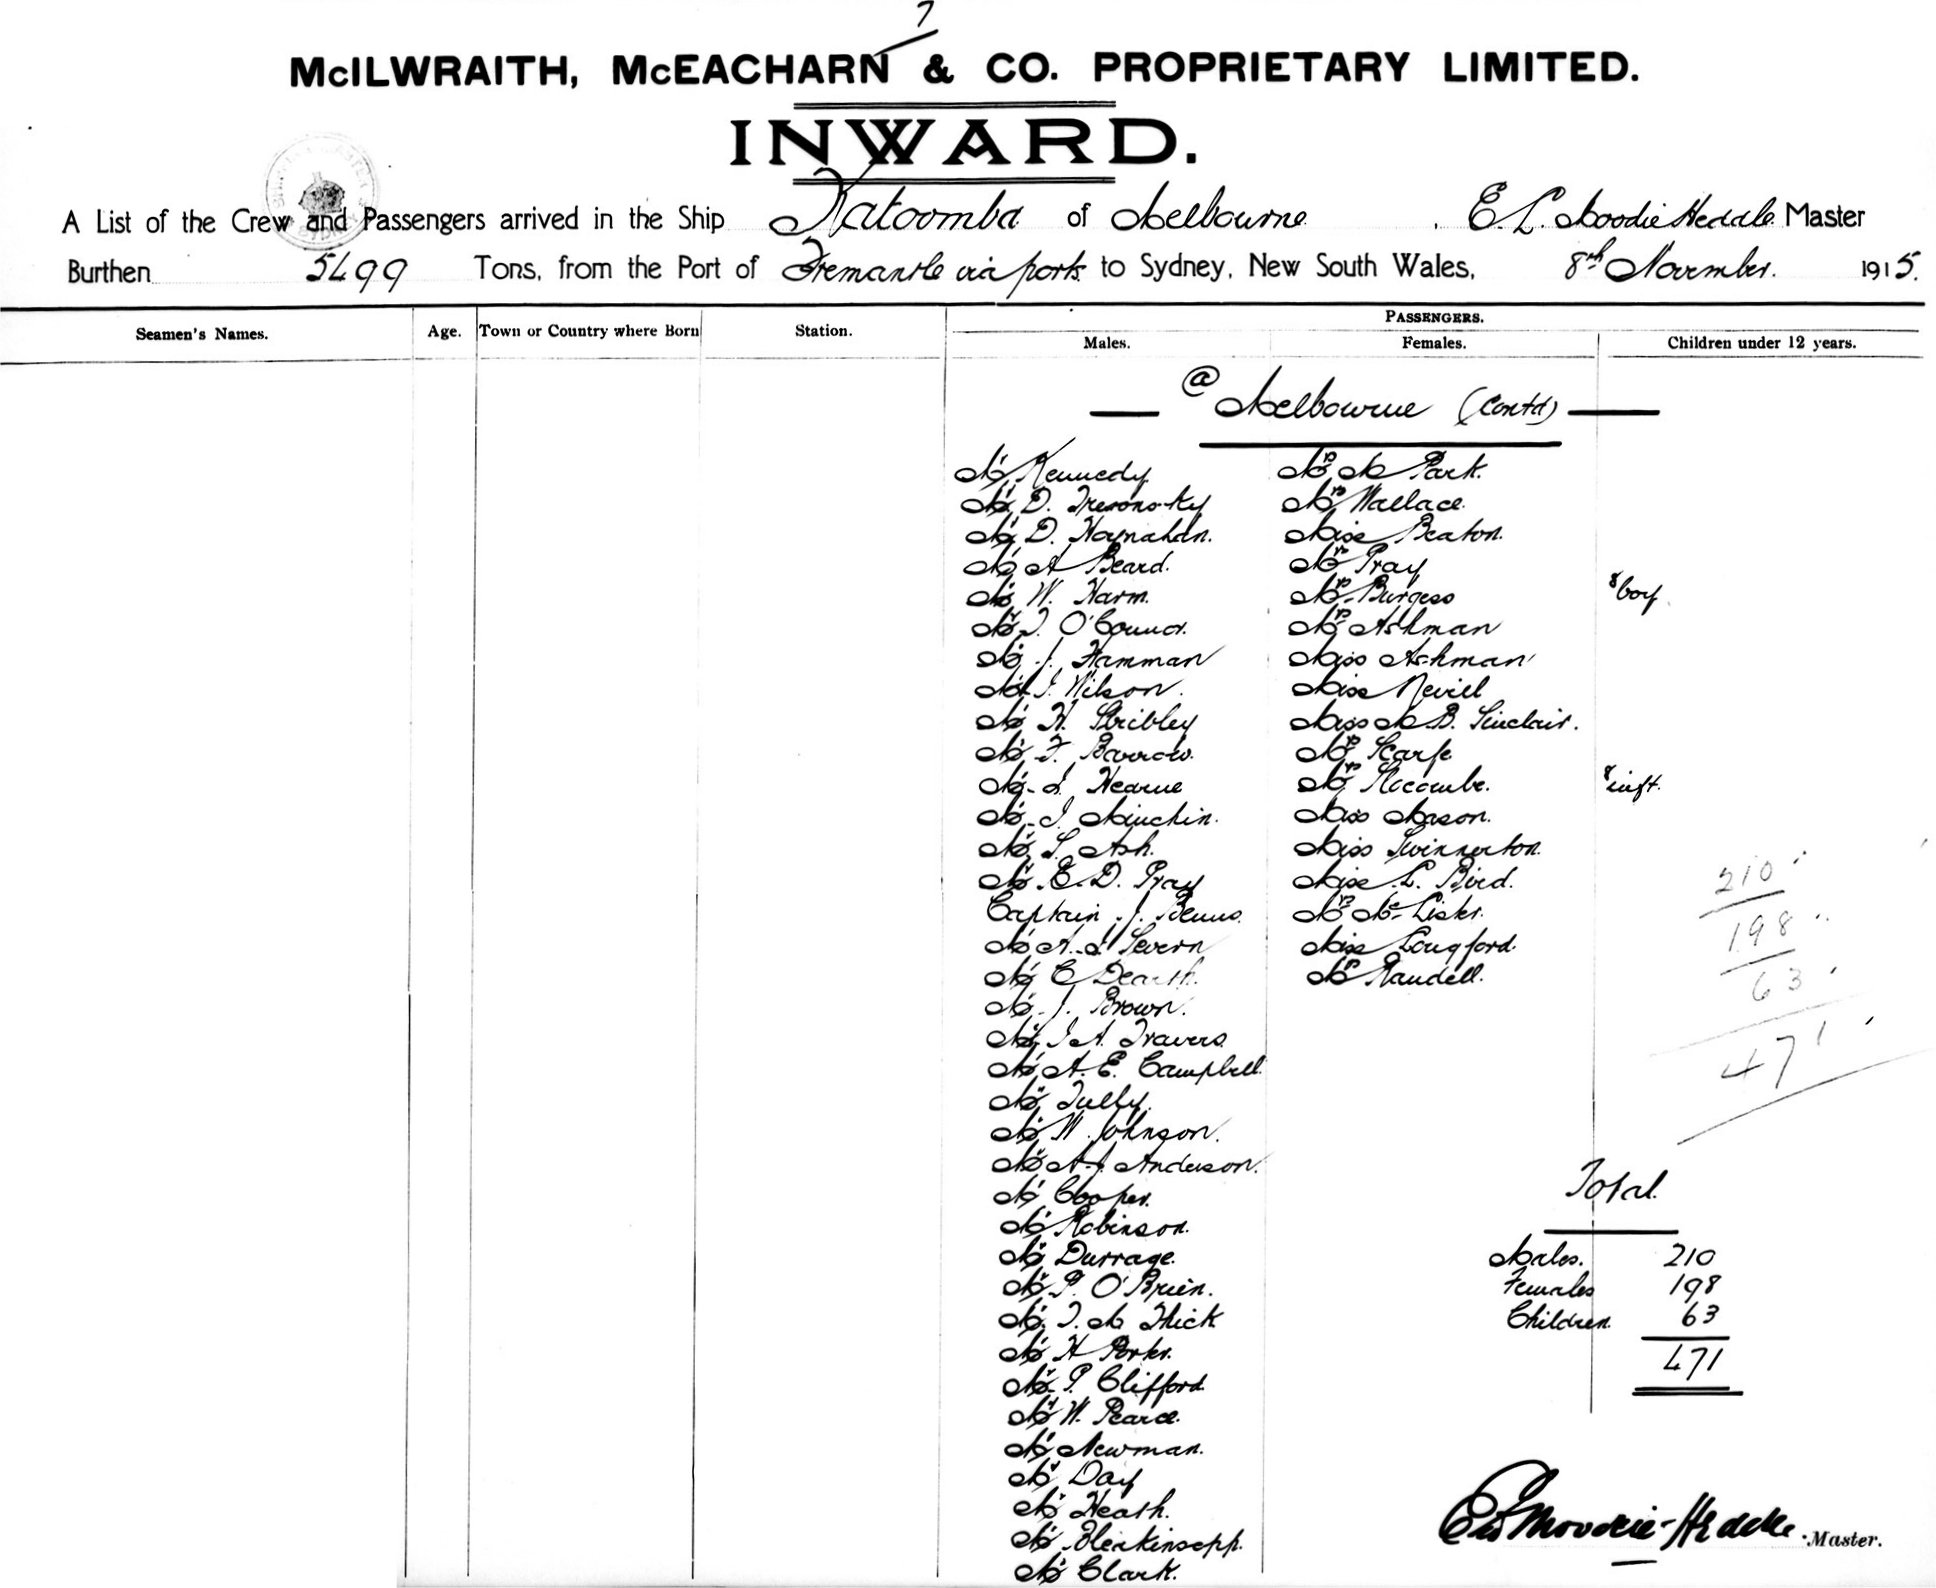 7
McILWRAITH, McEACHARN & CO. PROPRIETARY LIMITED.
INWARD.
A List of the Crew and Passengers arrived in the Ship Katoomba of Melbourne, E. L. Moodie Heddle Master
Burthen 5499 Tons, from the Port of Fremantle via ports to Sydney, New South Wales, 8th November. 1915.
Seamen's Names. Age. Town or Country where Born Station. PASSENGERS.
Males. Females. Children under 12 years.
@ Melbourne (Contd)
Mr Kennedy Mrs M Park.
Mr D. Mrs Wallace.
Mr D. Miss Beaton.
Mr A Beard. Mrs Pray
Mr W. Harm. Mrs Burgess & boy
Mr J. O'Connor. Mrs Ashman
Mr J. Hamman Miss Ashman
Mr J. Wilson. Miss Nevill
Mr H. Stribley Miss M. B. Sinclair.
Mr F. Barrow. Mrs Scarfe
Mr J. Hearne Mrs Slocombe. & inft.
Mr J. Minchin. Miss Mason.
Mr L. Ash. Miss Swinnerton.
Mr E. D. Pray Miss L. Bird. 210
Captain J. Benns. Mrs McLister. 198
Mr A. J. Severn Miss Longford.
Mr C Dearth. Mrs Randell. 63
Mr J. Brown.
Mr J A. Travers. 471
Mr A. E. Campbell.
Mr Tully.
Mr W. Johnson.
Mr A. J. Anderson.
Mr Cooper. Total.
Mr Robinson.
Mr Durrage. Males. 210
Mr P. O'Brien. Females 198
Mr T. M Thick Children. 63
Mr H Porter. 471
Mr P. Clifford.
Mr W. Pearce.
Mr Newman.
Mr Day
Mr Heath.
Mr Blenkinsopp. Moodie-Heddle Master.
Mr Clark.